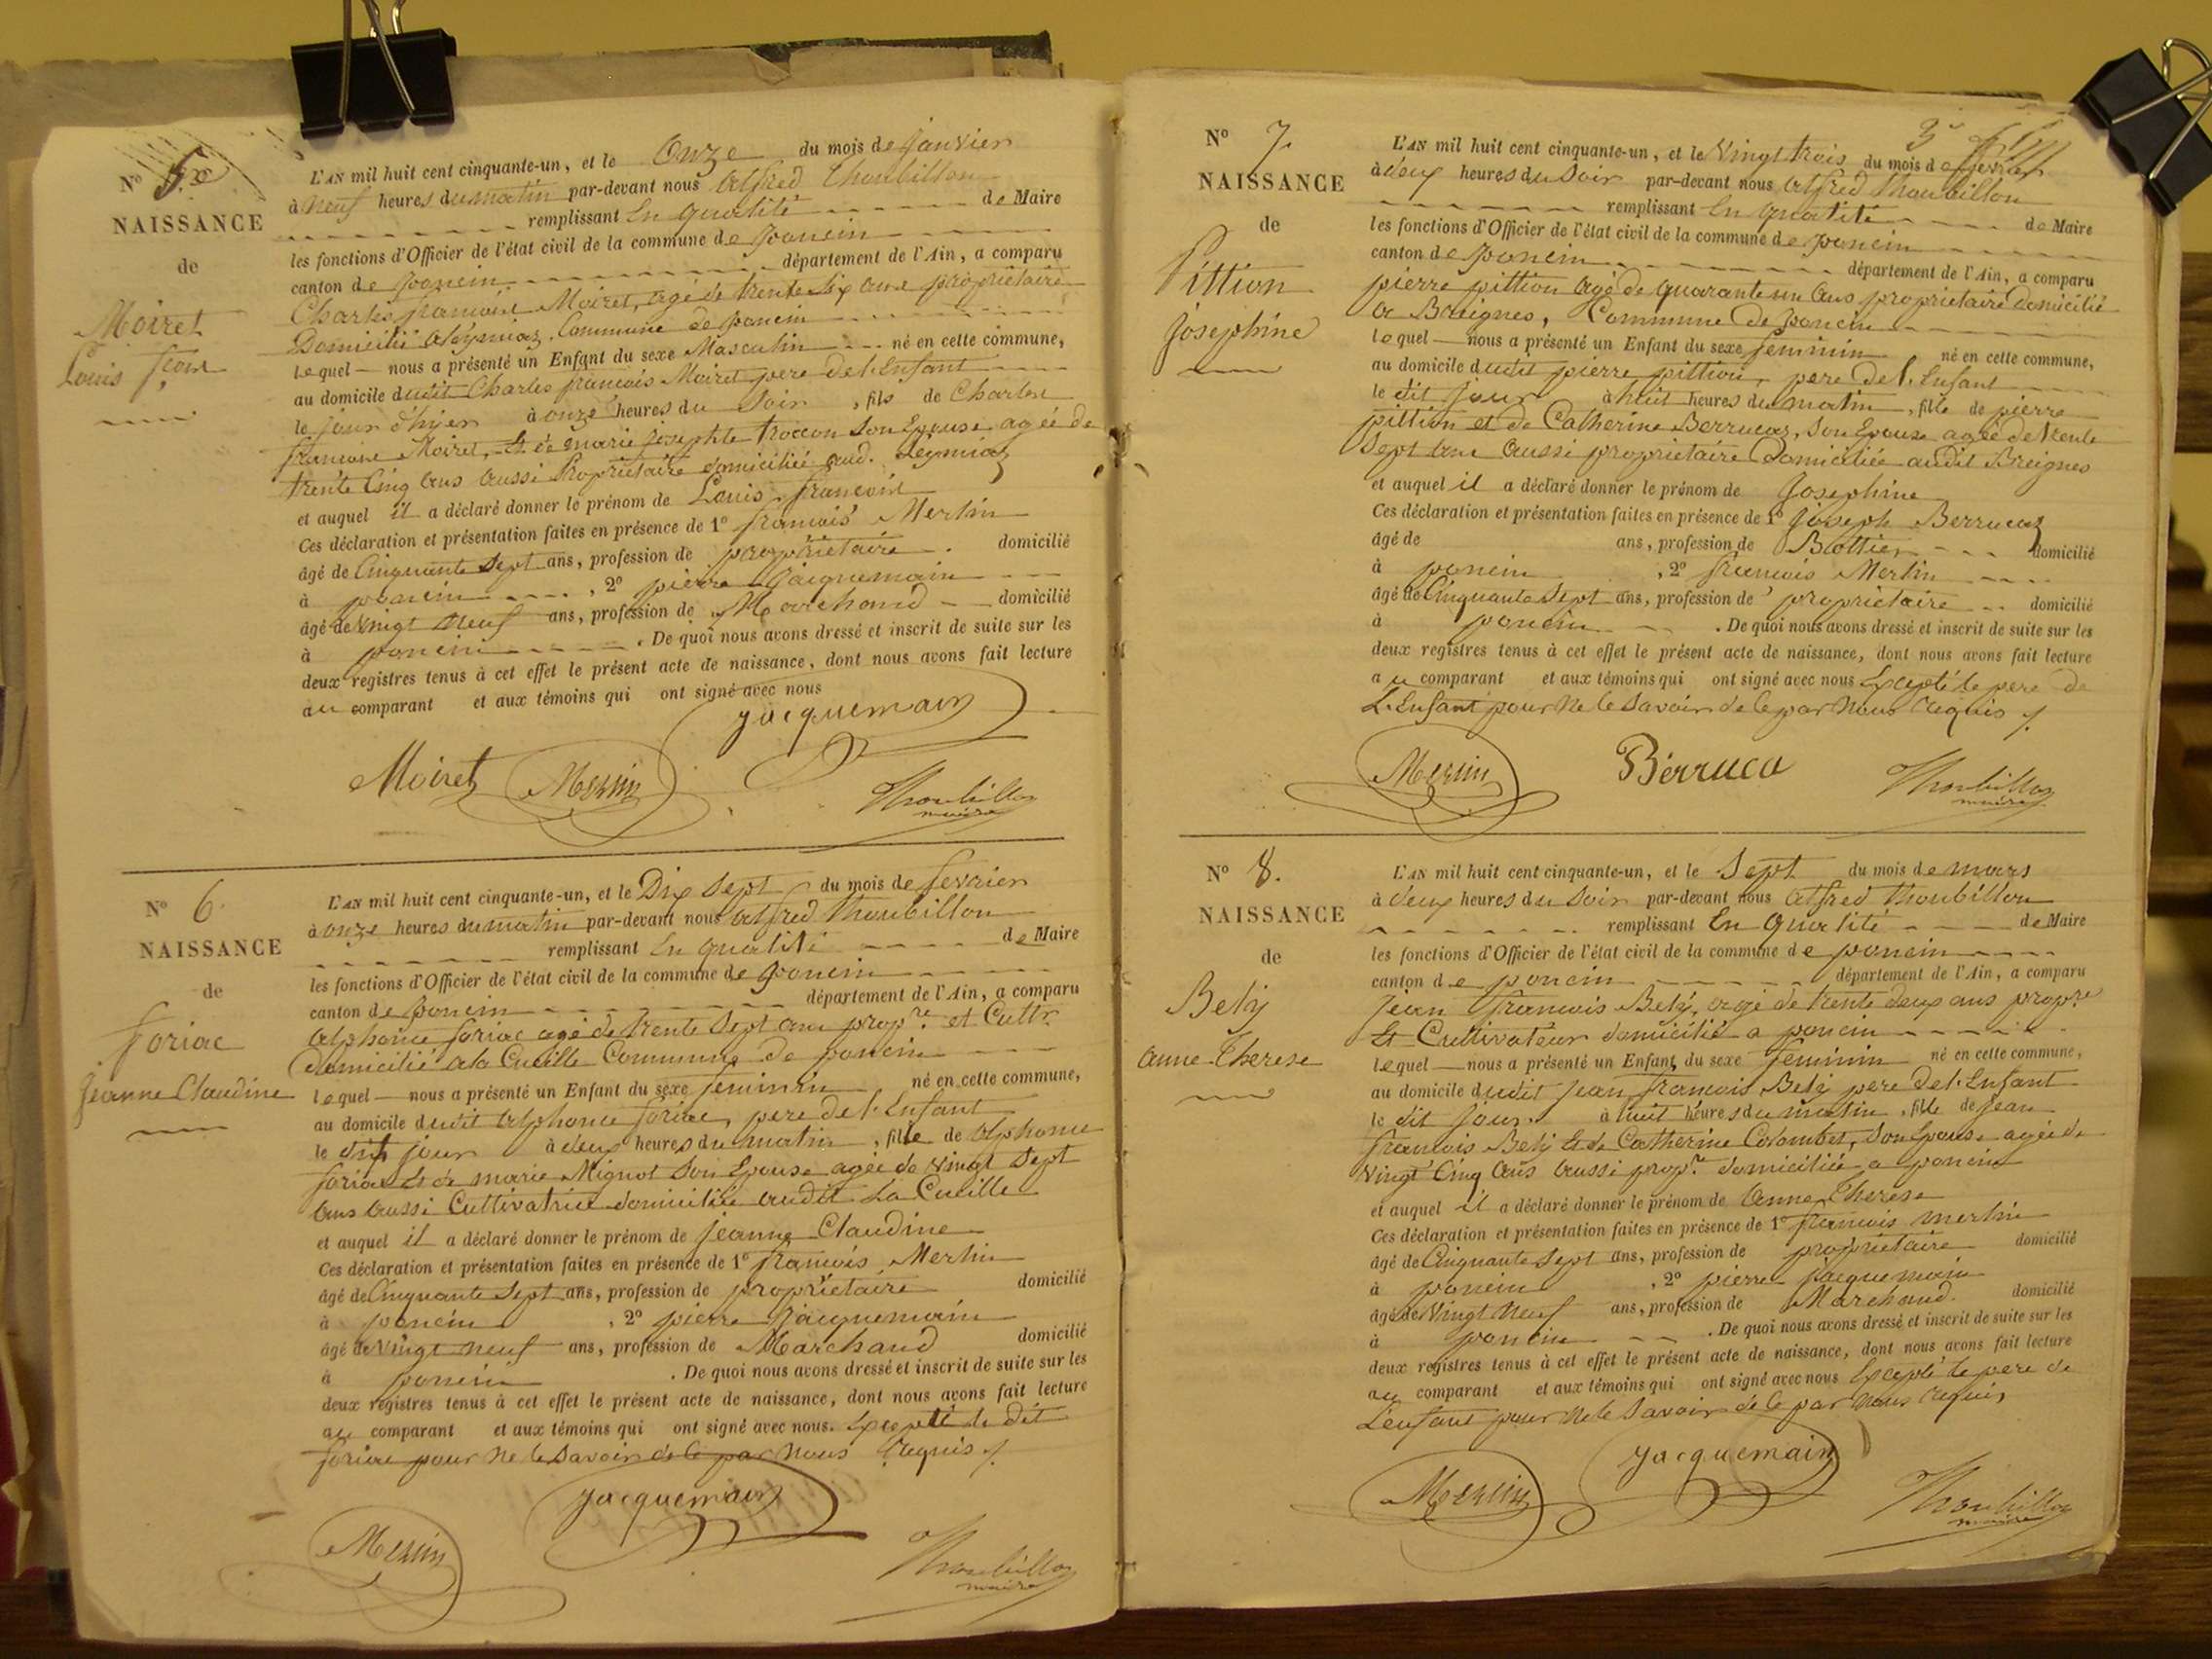 N° 5.
NAISSANCE
de
Moiret
Louis fcois
L'AN mil huit cent cinquante-un, et le Onze du mois de janvier
à neuf heures du matin par-devant nous alfred Thoubillon
remplissant En qualité de Maire
les fonctions d'Officier de l'état civil de la commune de poncin
canton de poncin département de l'Ain, a comparu
Charles francois Moiret, agé de trente six ans propriétaire
Domicilié a leymiaz, Commune de poncin
lequel nous a présenté un Enfant du sexe Masculin né en cette commune,
au domicile dudit Charles francois Moiret pere de l'Enfant
le jour d'hyer à onze heures du soir, fils de Charles
francois Moiret, Et de marie josephte troccon son Epouse agée de
trente Cinq ans aussi Propriétaire domiciliée aud. Leymiaz
et auquel il a déclaré donner le prénom de Louis francois
Ces déclaration et présentation faites en présence de 1° francois Merlin
âgé de Cinquante Sept ans, profession de propriétaire. domicilié
à poncin, 2° pierre Jacquemain
âgé de vingt neuf ans, profession de Marchand domicilié
à poncin. De quoi nous avons dressé et inscrit de suite sur les
deux registres tenus à cet effet le présent acte de naissance, dont nous avons fait lecture
au comparant et aux témoins qui ont signé avec nous
jacquemain
Moiret Merlin
Thoubillon
maire
N° 6.
NAISSANCE
de
foriac
Jeanne Claudine
L'AN mil huit cent cinquante-un, et le Dix Sept du mois de fevrier
à onze heures du matin par-devant nous alfred Thoubillon
remplissant En qualité de Maire
les fonctions d'Officier de l'état civil de la commune de poncin
canton de poncin département de l'Ain, a comparu
alphonse foriac agé de trente sept ans propre et Cultr
domicilié a la Cueille Commune de poncin
lequel nous a présenté un Enfant du sexe feminin né en cette commune,
au domicile dudit alphonse foriac, pere de l'Enfant
le dit jour à deux heures du matin, fille de alphonse
foriac Et de marie Mignot son Epouse agée de vingt sept
ans aussi Cultivatrice domiciliée audit La Cueille
et auquel il a déclaré donner le prénom de jeanne Claudine
Ces déclaration et présentation faites en présence de 1° francois Merlin
âgé de Cinquante Sept ans, profession de propriétaire domicilié
à poncin, 2° pierre Jacquemain
âgé de vingt neuf ans, profession de Marchand domicilié
à poncin. De quoi nous avons dressé et inscrit de suite sur les
deux registres tenus à cet effet le présent acte de naissance, dont nous avons fait lecture
au comparant et aux témoins qui ont signé avec nous. Excepté le dit
foriac pour ne le savoir de ce par nous requis /.
jacquemain
Merlin
Thoubillon
maire
3
N° 7.
NAISSANCE
de
Pittion
josephine
L'AN mil huit cent cinquante-un, et le vingt trois du mois de fevrier
à deux heures du Soir par-devant nous alfred thoubillon
remplissant En qualité de Maire
les fonctions d'Officier de l'état civil de la commune de poncin
canton de poncin département de l'Ain, a comparu
pierre pittion agé de quarante un ans propriétaire domicilié
a Breignes, Commune de poncin
lequel nous a présenté un Enfant du sexe feminin né en cette commune,
au domicile dudit pierre pittion, pere de l'Enfant
le dit jour à huit heures du matin, fille de pierre
pittion et de Catherine Berrucaz, son Epouse agée de trente
sept ans aussi propriétaire Domiciliée audit Breignes
et auquel il a déclaré donner le prénom de Josephine
Ces déclaration et présentation faites en présence de 1° joseph Berrucaz
âgé de ans, profession de Bottier domicilié
à poncin, 2° francois Merlin
âgé de Cinquante Sept ans, profession de propriétaire domicilié
à poncin. De quoi nous avons dressé et inscrit de suite sur les
deux registres tenus à cet effet le présent acte de naissance, dont nous avons fait lecture
au comparant et aux témoins qui ont signé avec nous Excepté le pere de
L'Enfant pour ne le savoir de ce par nous requis /.
Merlin Bérruca Thoubillon
maire
N° 8.
NAISSANCE
de
Bely
anne Therese
L'AN mil huit cent cinquante-un, et le Sept du mois de mars
à deux heures du soir par-devant nous alfred thoubillon
remplissant En Qualité de Maire
les fonctions d'Officier de l'état civil de la commune de poncin
canton de poncin département de l'Ain, a comparu
jean francois Bely, agé de trente deux ans propre
Et Cultivateur domicilié a poncin
lequel nous a présenté un Enfant du sexe feminin né en cette commune,
au domicile dudit jean francois Bely pere de l'Enfant
le dit jour. à huit heures du matin, fille de jean
francois Bely Et de Catherine Colombet, son Epouse agée de
vingt Cinq ans aussi propre domiciliée a poncin
et auquel il a déclaré donner le prénom de anne Therese
Ces déclaration et présentation faites en présence de 1° francois merlin
âgé de Cinquante Sept ans, profession de propriétaire domicilié
à poncin, 2° pierre jacquemain
âgé de vingt neuf ans, profession de Marchand. domicilié
à poncin. De quoi nous avons dressé et inscrit de suite sur les
deux registres tenus à cet effet le présent acte de naissance, dont nous avons fait lecture
au comparant et aux témoins qui ont signé avec nous Excepté le pere de
L'enfant pour ne le savoir de ce par nous requis
jacquemain
Merlin Thoubillon
maire